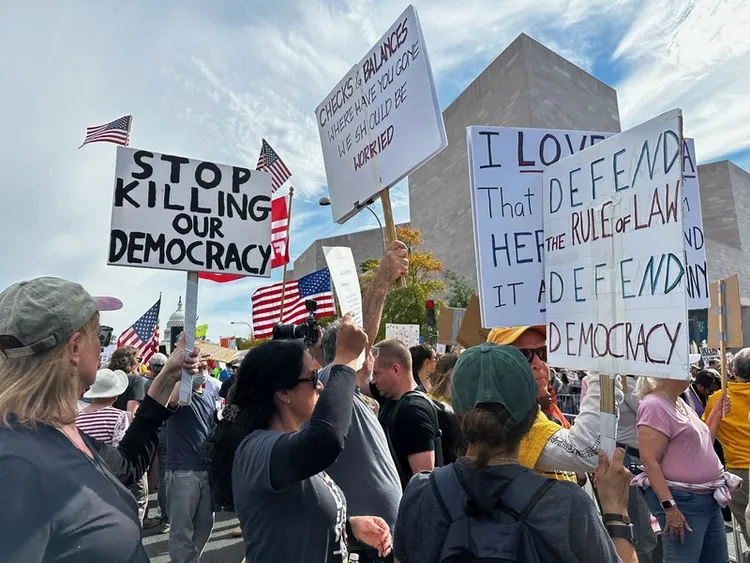 STOP
KILLING
OUR
DEMOCRACY
CHECKS & BALANCES
WHERE HAVE YOU GONE
WE SHOULD BE
WORRIED
I LOV
That
HER
IT A
DEFEND
THE RULE of LAW
DEFEND
DEMOCRACY